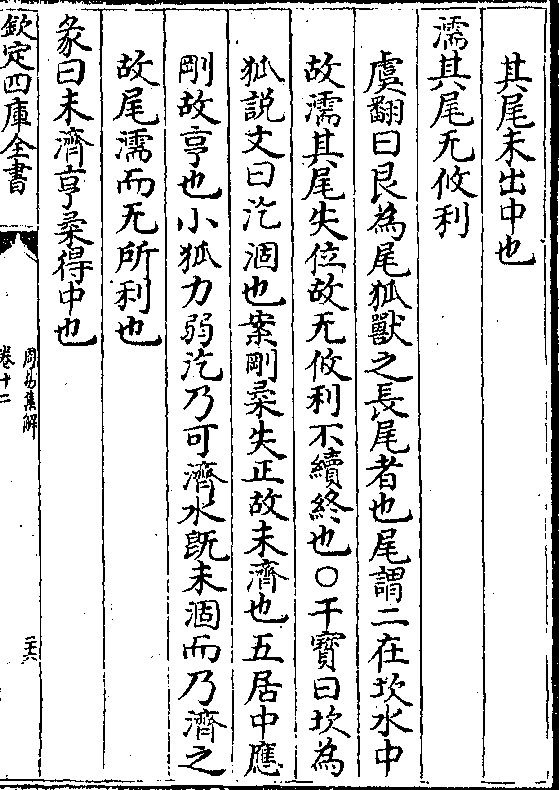 其尾未出中也
濡其尾无攸利
虞翻曰艮為尾狐獸之長尾者也尾謂二在坎水中
故濡其尾失位故无攸利不續終也○干寶曰坎為
狐說文曰汔涸也案剛柔失正故未濟也五居中應
剛故亨也小狐力弱汔乃可濟水旣未涸而乃濟之
故尾濡而无所利也
彖曰未濟亨柔得中也
欽定四庫全書
周易集解
卷十二
二十六